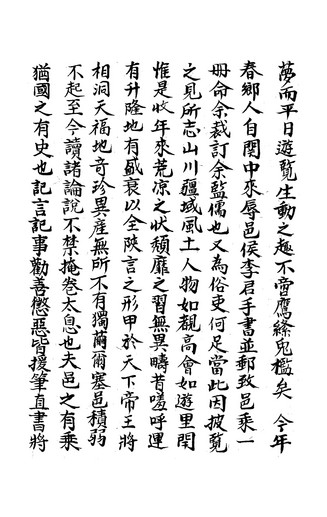 夢而平日遊覽生動之趣不啻鷹絛兔檻矣　今年
春鄉人自関中來辱邑侯李君手書並郵致邑乘一
冊命余裁訂余蓝儒也又為俗吏何足當此因披覽
之見所志山川疆域風土人物如覩高會如遊里閈
惟是收年來荒凉之状頽靡之習無異疇昔嗟呼運
有升降地有盛衰以全陝言之形甲於天下帝王將
相洞天福地奇珍異産無所不有獨蕞爾塞邑積弱
不起至今讀諸論說不禁掩卷太息也夫邑之有乘
猶國之有史也記言記事勸善懲惡皆援筆直書將